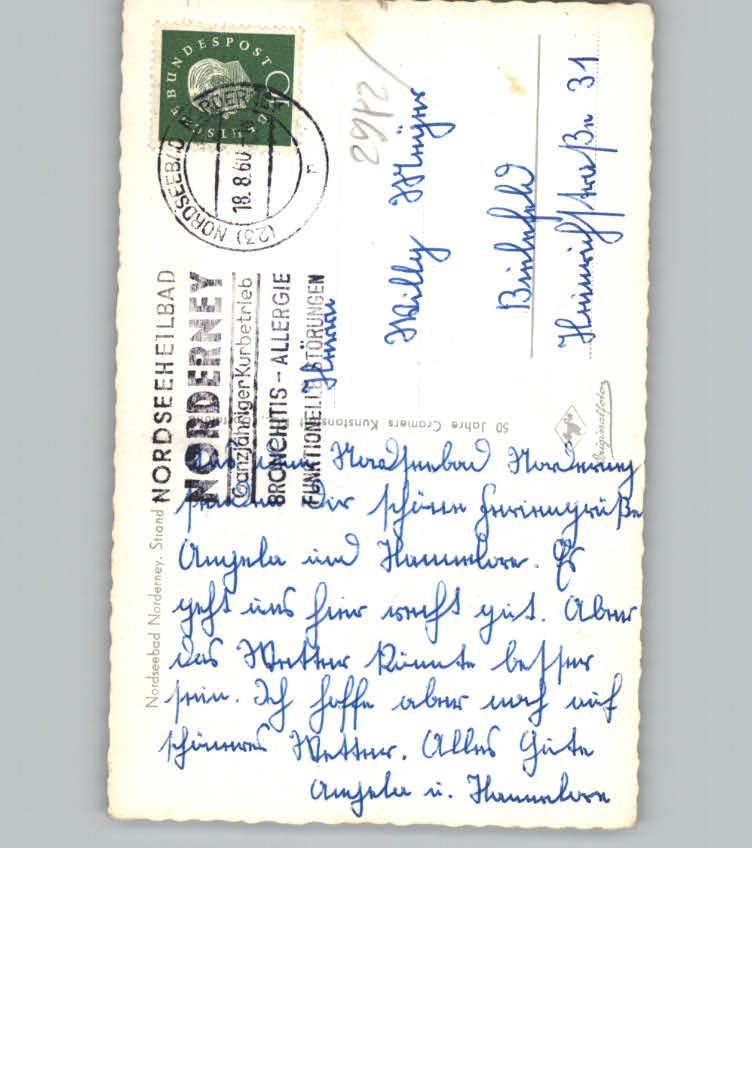 DEUTSCHE BUNDESPOST
(23) NORDSEEBAD NORDERNEY
18.8.60
n
NORDSEEHEILBAD
NORDERNEY
Ganzjähriger Kurbetrieb
BRONCHITIS - ALLERGIE
FUNKTIONELLE STÖRUNGEN
2982/
Herrn
Willy Meyer
Bielefeld
Heinrichstraße 31
50 Jahre Cramers Kunstanstalt
Originalfoto
Nordseebad Norderney. Strand
Aus dem Nordseebad Norderney
senden Dir schöne Feriengrüße
Angela und Hannelore. Es
geht uns hier recht gut. Aber
das Wetter könnte besser
sein. Ich hoffe aber noch auf
schöneres Wetter. Alles Gute
Angela u. Hannelore